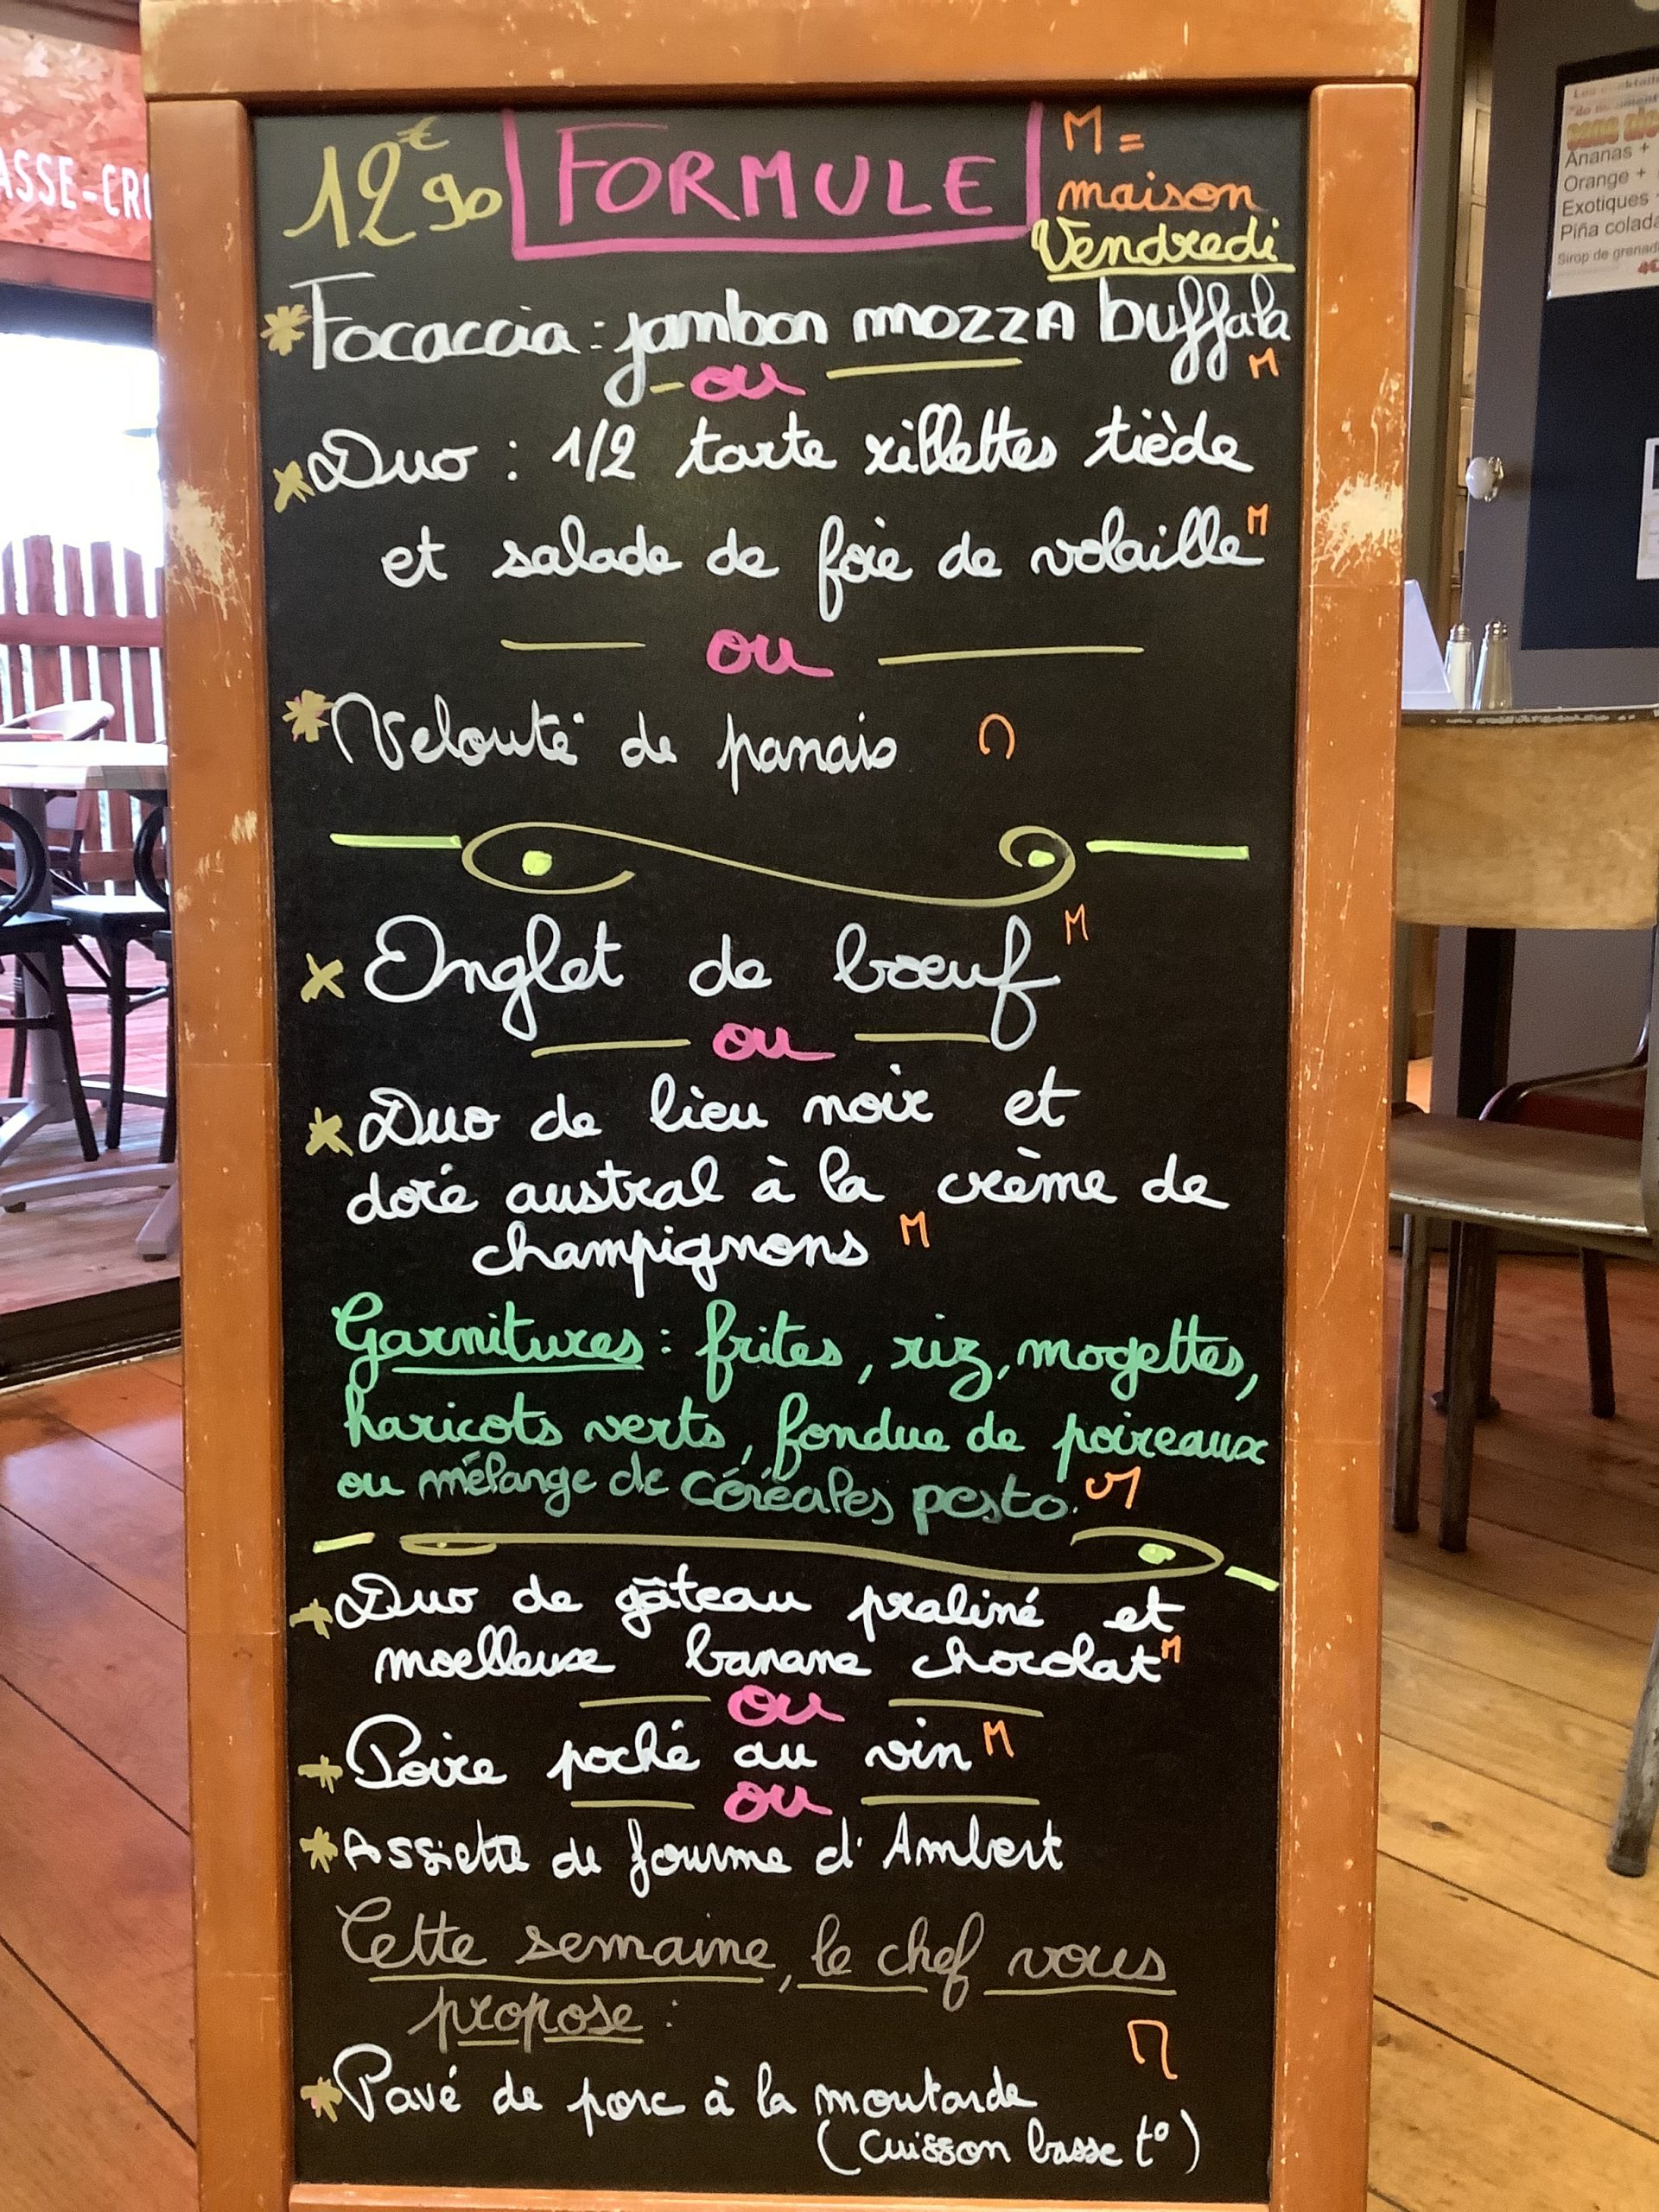 12€90 FORMULE M =
maison
Vendredi
* Focaccia : jambon mozzA buffala M
- ou -
* Duo : 1/2 tarte rillettes tiède
et salade de foie de volaille M
- ou -
* Velouté de panais M
* Onglet de bœuf M
- ou -
* Duo de lieu noir et
doré austral à la crème de
champignons M
Garnitures : frites, riz, mogettes,
haricots verts, fondue de poireaux
ou mélange de céréales pesto. M
* Duo de gâteau praliné et
moelleux banane chocolat M
- ou -
* Poire poché au vin M
- ou -
* Assiette de fourme d'Ambert
Cette semaine, le chef vous
propose :
M
* Pavé de porc à la moutarde
(cuisson basse t°)
ASSE-CR
sans
Ananas +
Orange +
Exotiques
Piña colada
Sirop de grenad